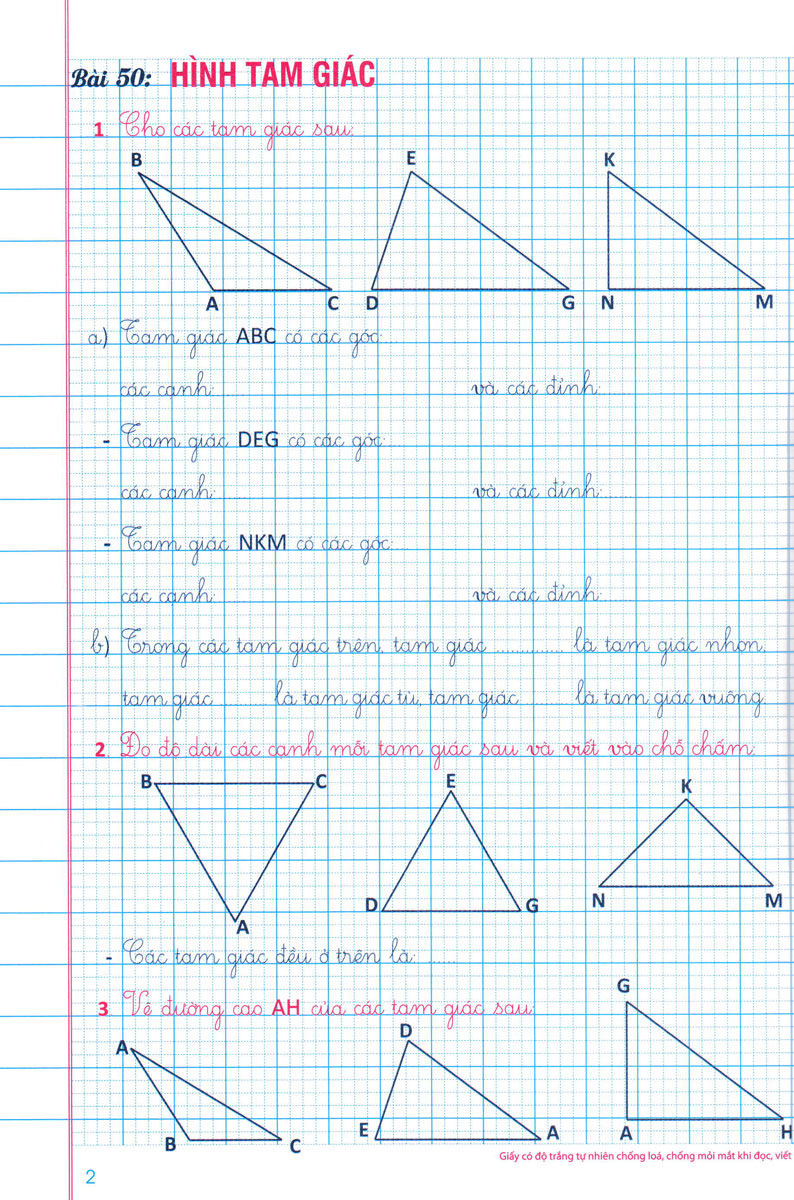 Bài 50: HÌNH TAM GIÁC
1 Cho các tam giác sau:
B E K
A C D G N M
a) Tam giác ABC có các góc:....
các cạnh:...... và các đỉnh:......
- Tam giác DEG có các góc:
các cạnh:...... và các đỉnh:......
- Tam giác NKM có các góc:....
các cạnh:...... và các đỉnh:......
b) Trong các tam giác trên, tam giác .............. là tam giác nhọn,
tam giác .......... là tam giác tù, tam giác ...... là tam giác vuông.
2. Đo độ dài các cạnh mỗi tam giác sau và viết vào chỗ chấm:
B C E K
A D G N M
- Các tam giác đều ở trên là: ......
3. Vẽ đường cao AH của các tam giác sau:
A D G
B C E A A H
Giấy có độ trắng tự nhiên chống loá, chống mỏi mắt khi đọc, viết
2